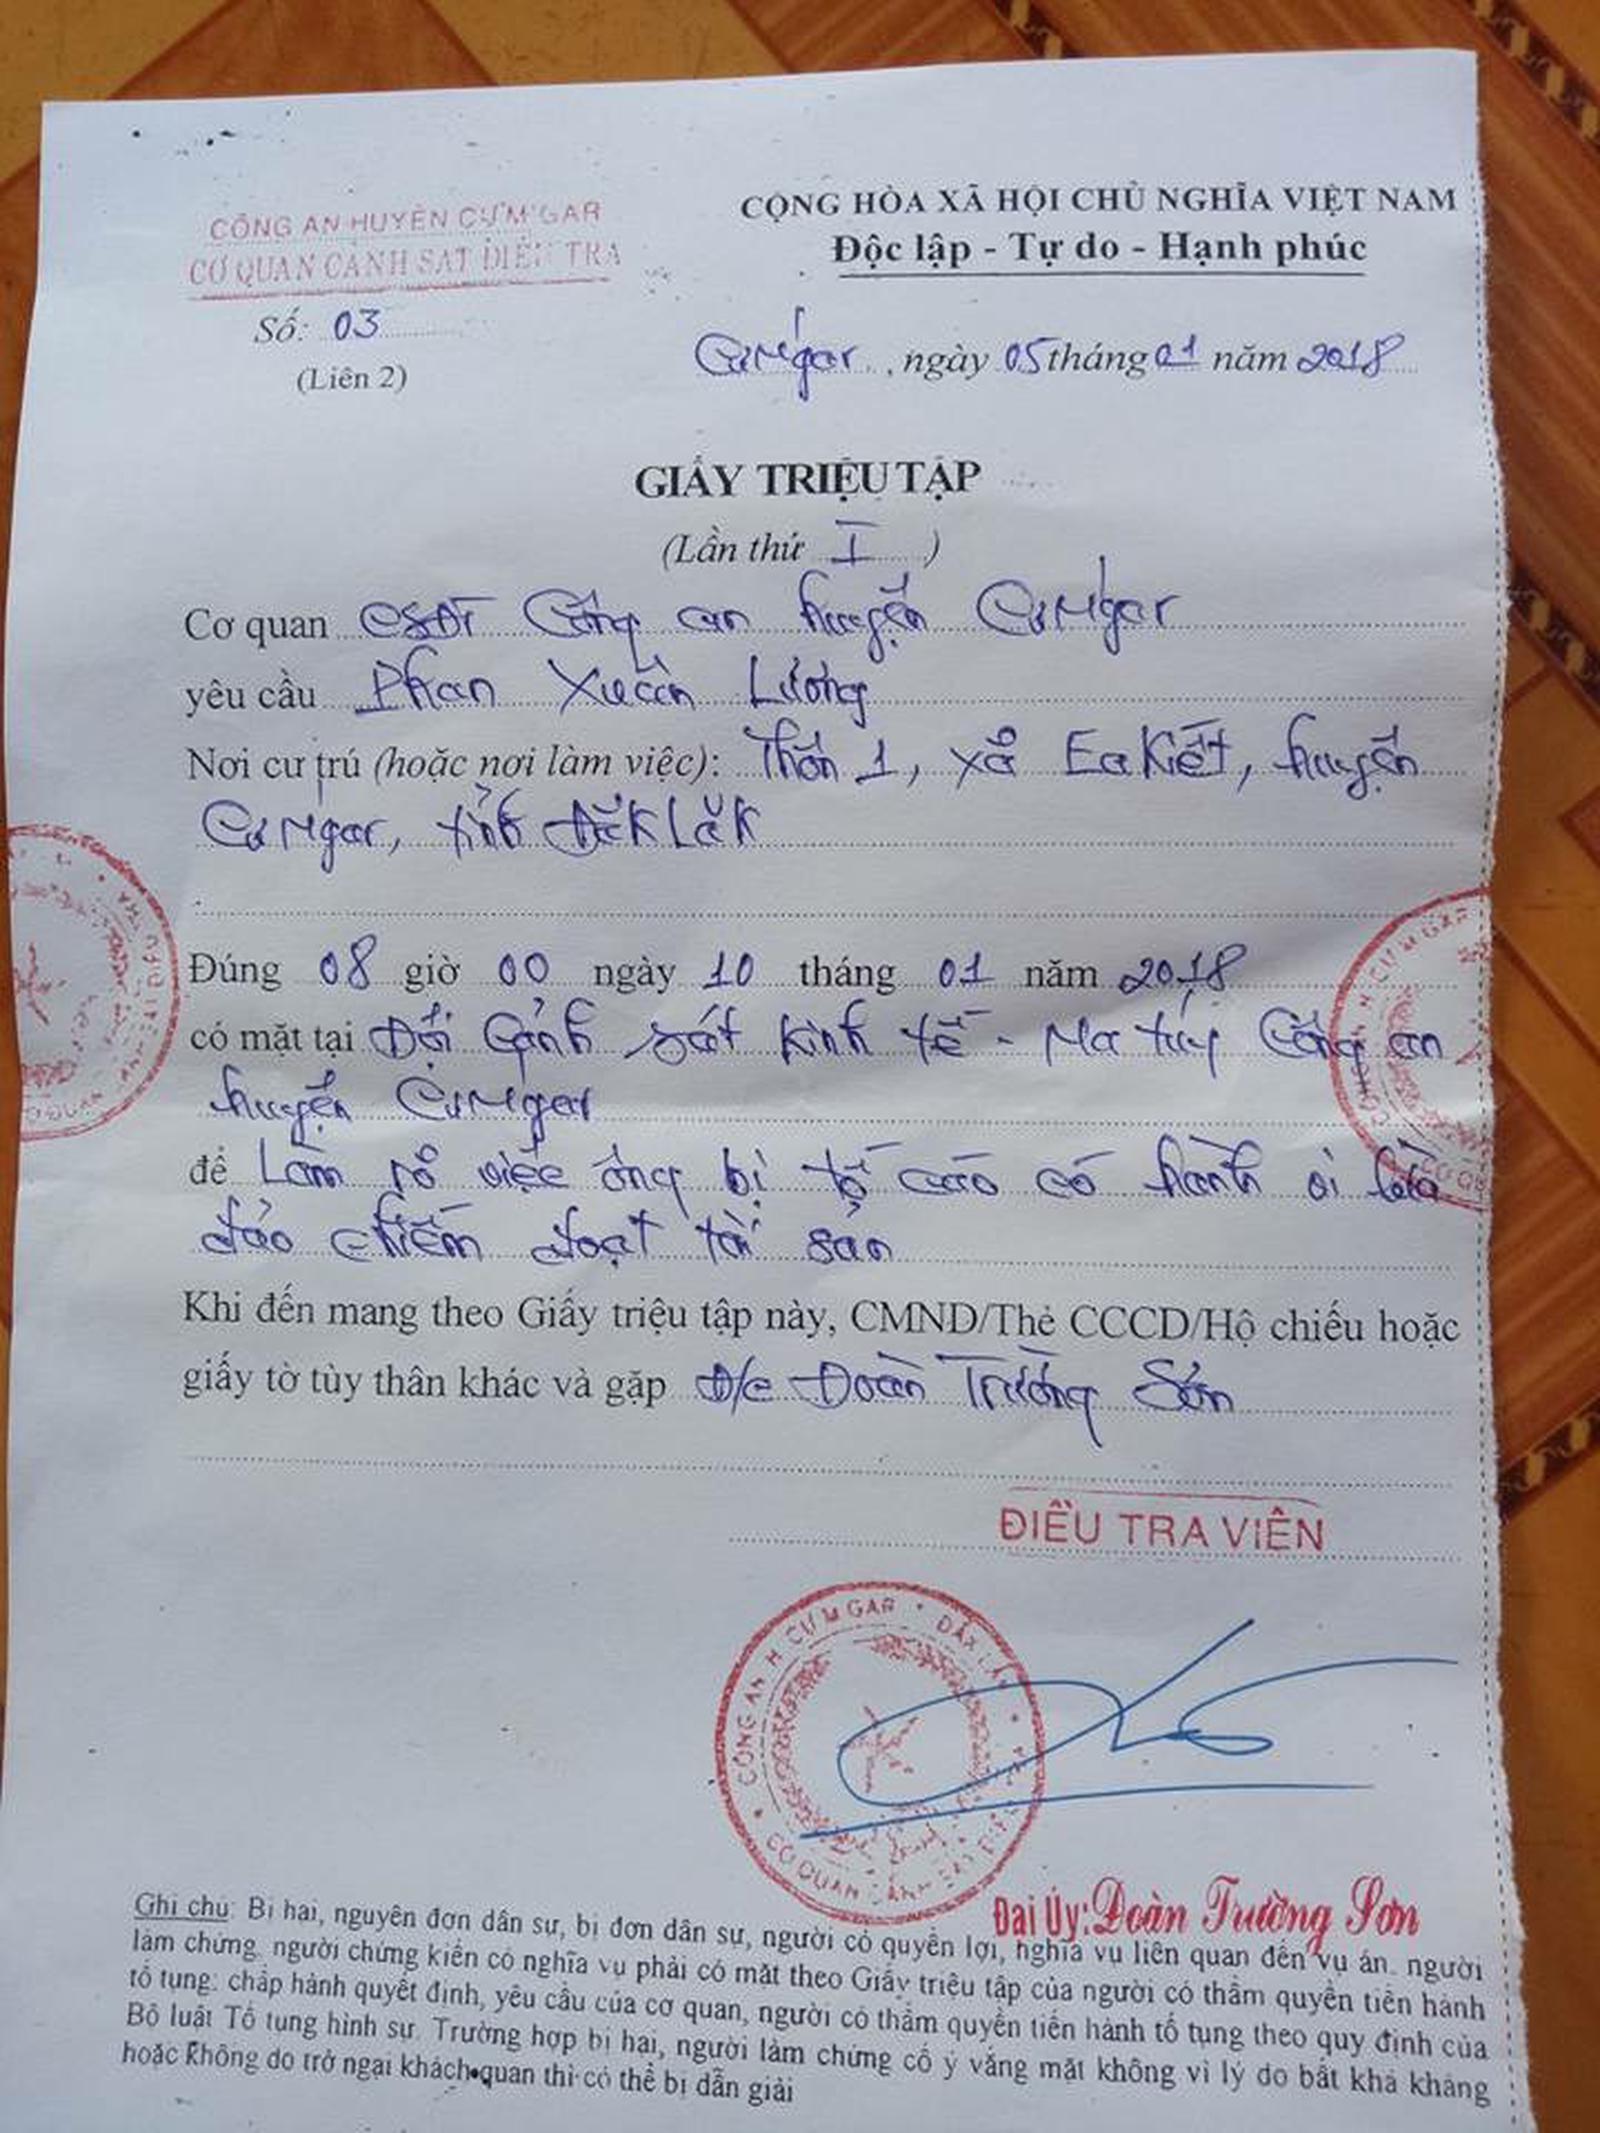 CÔNG AN HUYỆN CƯM'GAR
CƠ QUAN CẢNH SÁT ĐIỀU TRA
Số: 03
(Liên 2)
CỘNG HÒA XÃ HỘI CHỦ NGHĨA VIỆT NAM
Độc lập - Tự do - Hạnh phúc
CưMgar, ngày 05 tháng 01 năm 2018
GIẤY TRIỆU TẬP
(Lần thứ I)
Cơ quan CSĐT Công an huyện CưMgar
yêu cầu Phan Xuân Lương
Nơi cư trú (hoặc nơi làm việc): Thôn 1, xã EaKiết, huyện
CưMgar, tỉnh ĐăkLăk
Đúng 08 giờ 00 ngày 10 tháng 01 năm 2018
có mặt tại Đội Cảnh sát kinh tế - Ma túy Công an
huyện CưMgar
để Làm rõ việc ông bị tố cáo có hành vi lừa
đảo chiếm đoạt tài sản
Khi đến mang theo Giấy triệu tập này, CMND/Thẻ CCCD/Hộ chiếu hoặc
giấy tờ tùy thân khác và gặp Đ/c Đoàn Trường Sơn
ĐIỀU TRA VIÊN
CÔNG AN H CƯM'GAR * ĐẮK LẮK *
CƠ QUAN CẢNH SÁT ĐIỀU TRA
Đại Úy: Đoàn Trường Sơn
Ghi chú: Bị hại, nguyên đơn dân sự, bị đơn dân sự, người có quyền lợi, nghĩa vụ liên quan đến vụ án, người
làm chứng, người chứng kiến có nghĩa vụ phải có mặt theo Giấy triệu tập của người có thẩm quyền tiến hành
tố tụng; chấp hành quyết định, yêu cầu của cơ quan, người có thẩm quyền tiến hành tố tụng theo quy định của
Bộ luật Tố tụng hình sự. Trường hợp bị hại, người làm chứng cố ý vắng mặt không vì lý do bất khả kháng
hoặc không do trở ngại khách quan thì có thể bị dẫn giải